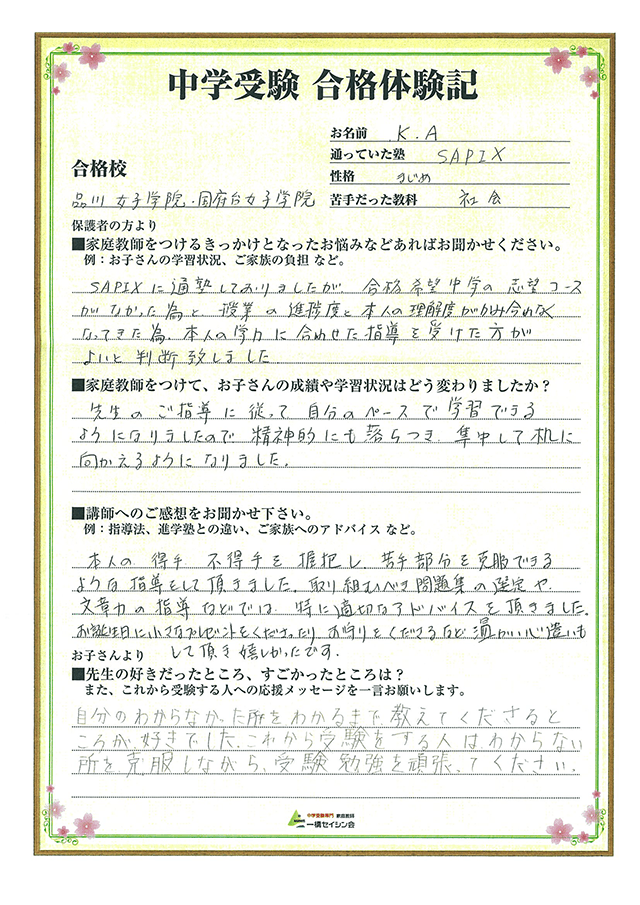 中学受験 合格体験記
お名前 K.A
通っていた塾 SAPIX
性格 まじめ
苦手だった教科 社会
合格校
品川女子学院・国府台女子学院
保護者の方より
■家庭教師をつけるきっかけとなったお悩みなどあればお聞かせください。
例：お子さんの学習状況、ご家族の負担 など。
SAPIXに通塾しておりましたが 合格希望中学の志望コース
がなかった為と 授業の進捗度と本人の理解度がかみ合わなく
なってきた為、本人の学力に合わせた指導を受けた方が
よいと判断致しました
■家庭教師をつけて、お子さんの成績や学習状況はどう変わりましたか？
先生のご指導に従って自分のペースで学習できる
ようになりましたので 精神的にも落ちつき、集中して机に
向かえるようになりました。
■講師へのご感想をお聞かせ下さい。
例：指導法、進学塾との違い、ご家族へのアドバイス など。
本人の得手 不得手を握把し、苦手部分を克服できる
ような指導をして頂きました。取り組むべき問題集の選定や
文章力の指導などでは、特に適切なアドバイスを頂きました。
お誕生日に小さなプレゼントをくださったり、お守りをくださるなど温かい心遣いも
して頂き嬉しかったです。
お子さんより
■先生の好きだったところ、すごかったところは？
また、これから受験する人への応援メッセージを一言お願いします。
自分のわからなかった所をわかるまで、教えてくださると
ころが好きでした。これから受験をする人はわからない
所を克服しながら、受験勉強を頑張ってください。
中学受験専門 家庭教師
一橋セイシン会